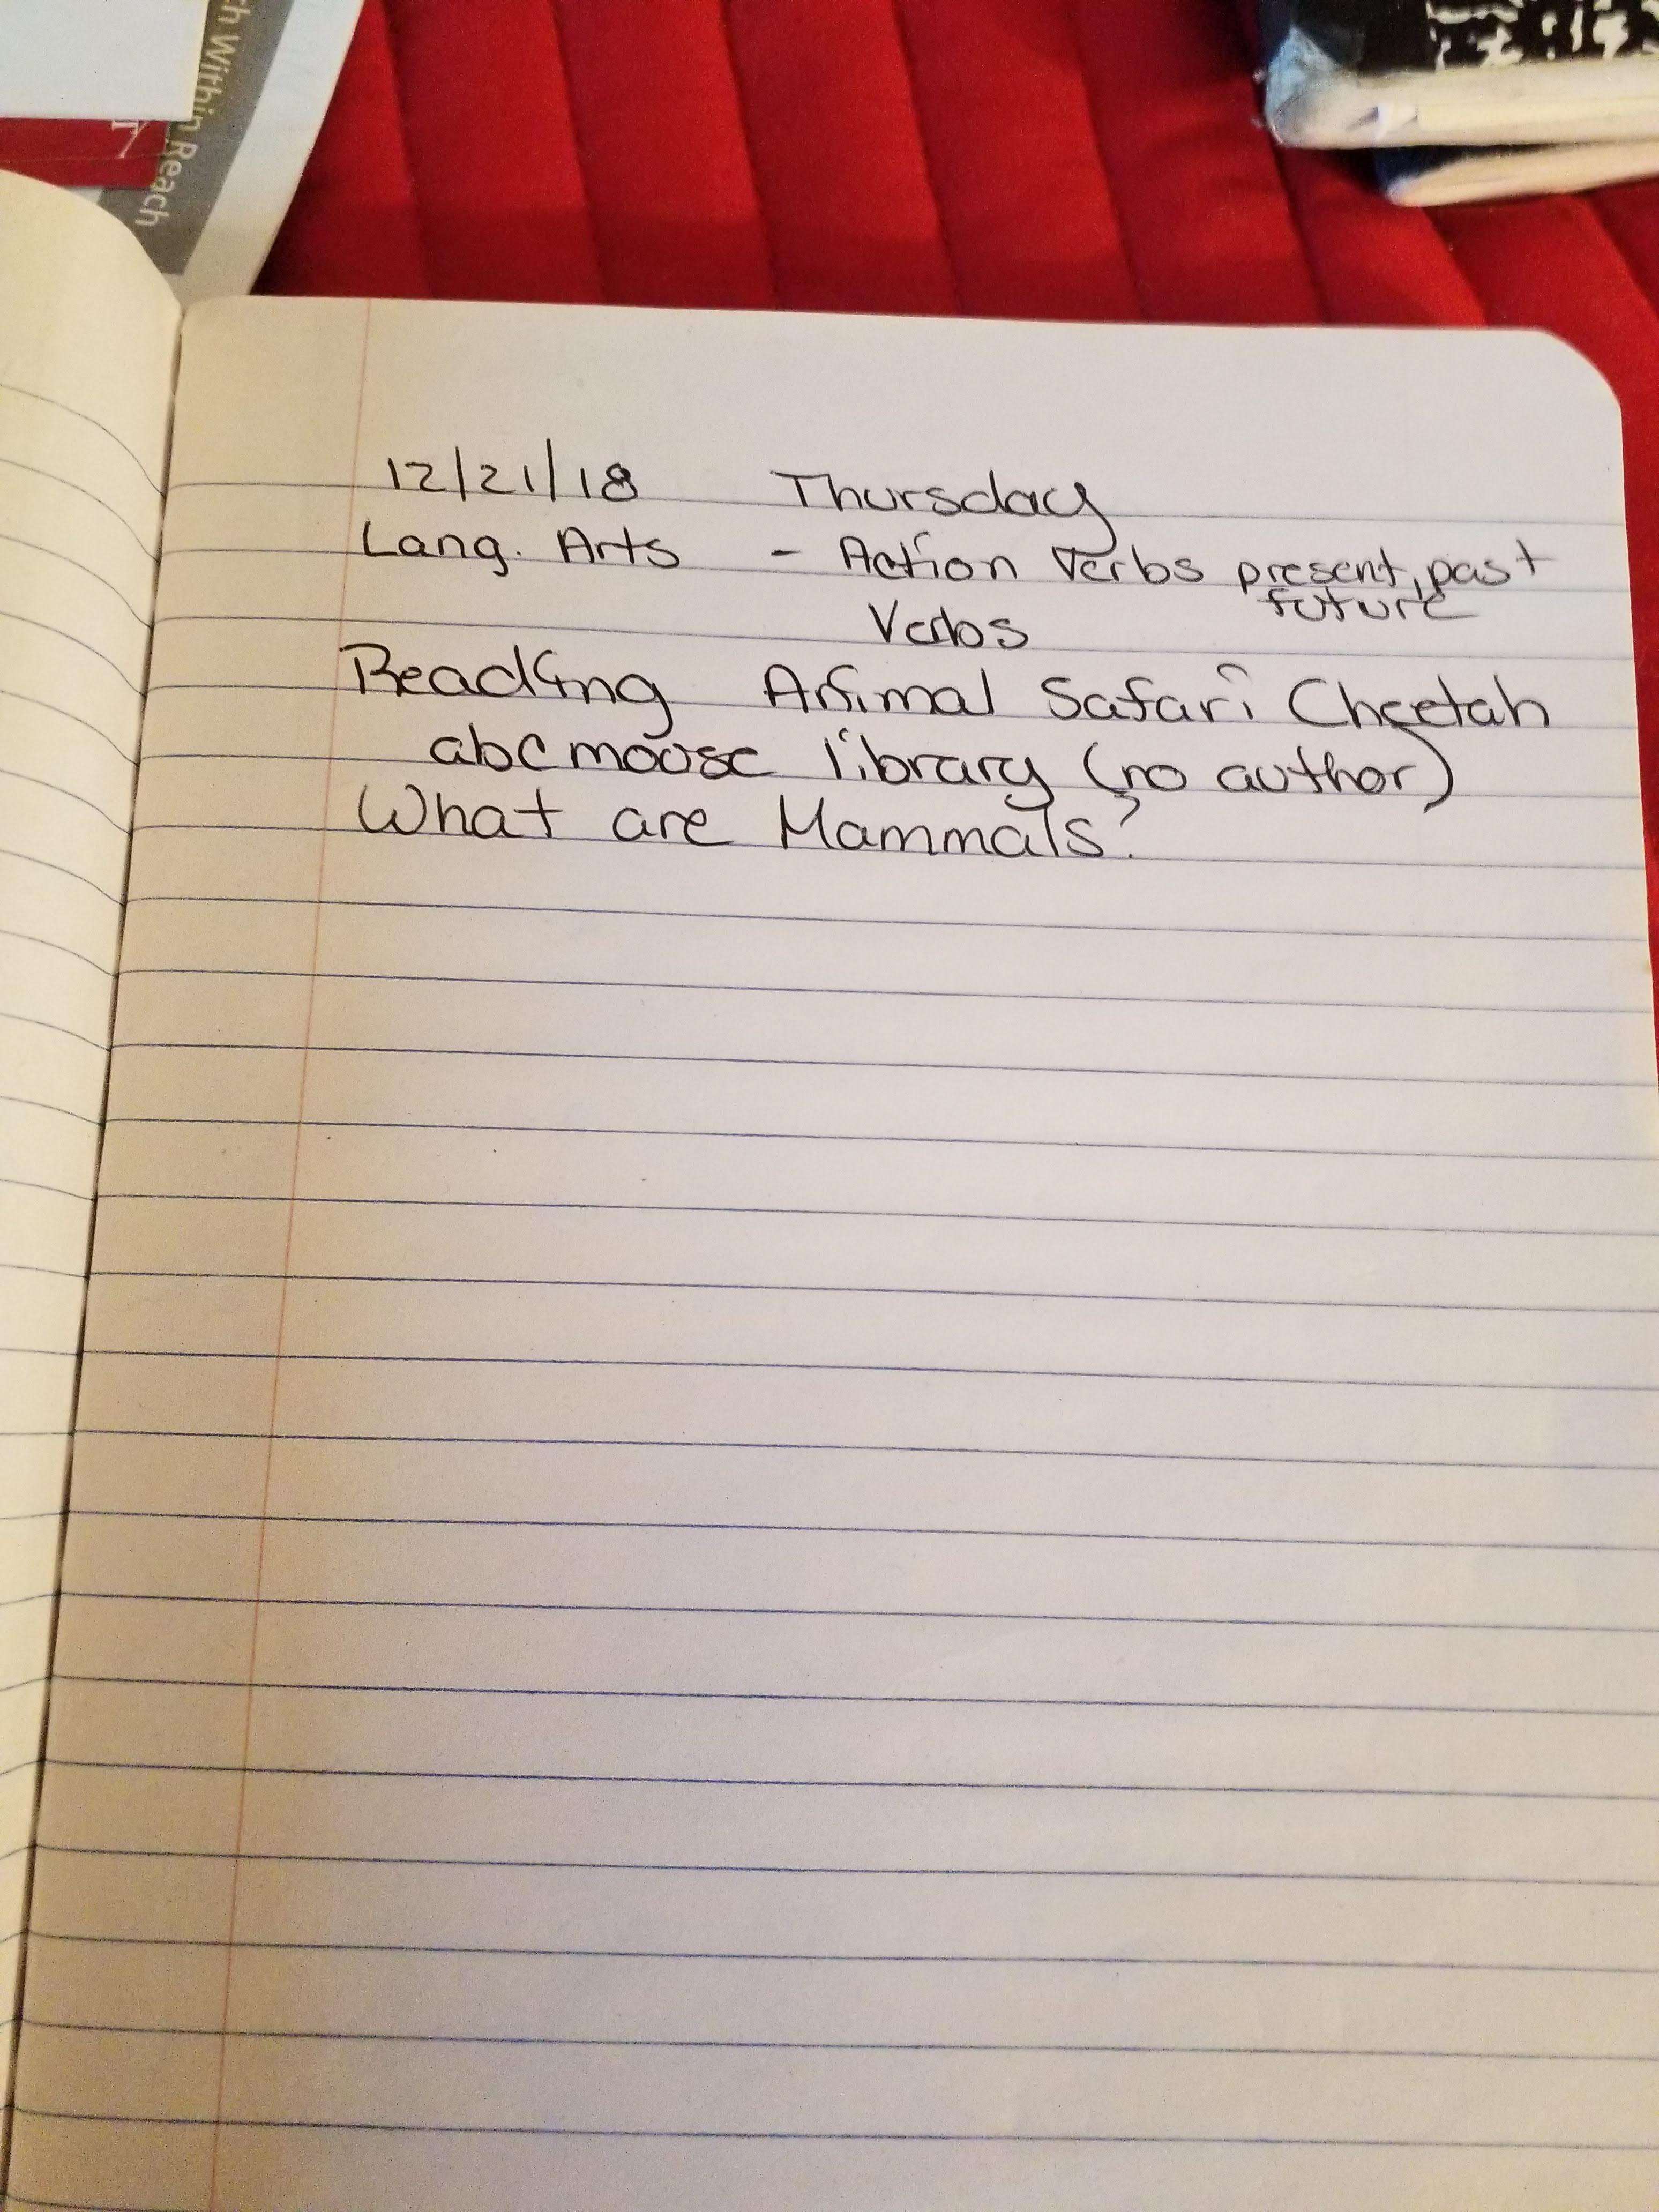 ch Within Reach
12/21/18 Thursday
Lang. Arts - Action Verbs present, past
future
Verbs
Reading Animal Safari Cheetah
abcmoose library (no author)
What are Mammals?